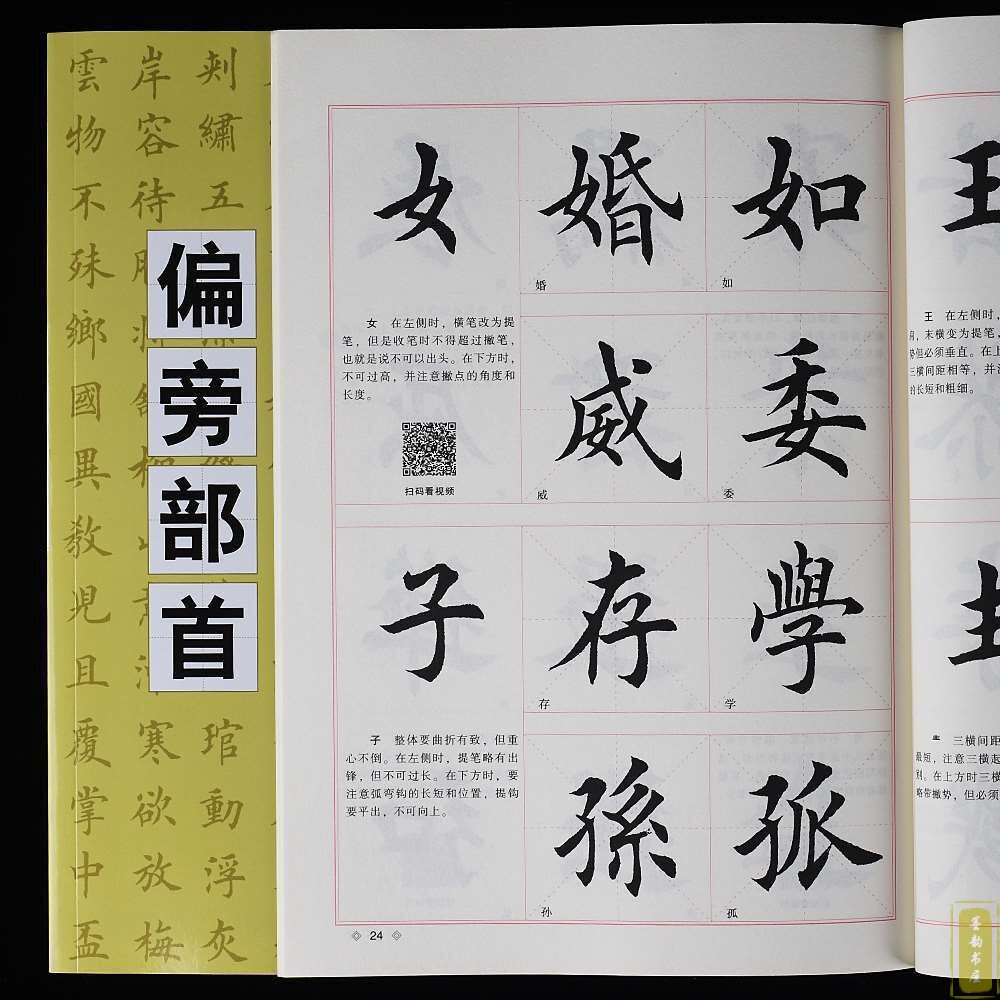 雲物不殊鄉國異教兒且覆掌中盃
岸容待
寒欲放梅
刺繡五
琯動浮灰
偏
旁
部
首
女
婚
如
婚
如
女 在左侧时，横笔改为提
笔，但是收笔时不得超过撇笔，
也就是说不可以出头。在下方时，
不可过高，并注意撇点的角度和
长度。
扫码看视频
威
委
威
委
子
存
學
存
学
子 整体要曲折有致，但重
心不倒。在左侧时，提笔略有出
锋，但不可过长。在下方时，要
注意弧弯钩的长短和位置，提钩
要平出，不可向上。
孫
孤
孙
孤
24
王
王 在左侧时，
末横变为提笔，
但必须垂直。在上
三横间距相等，并注
的长短和粗细。
三横间距
最短，注意三横起
别。在上方时三横
略带撇势，但必须
墨韵书屋